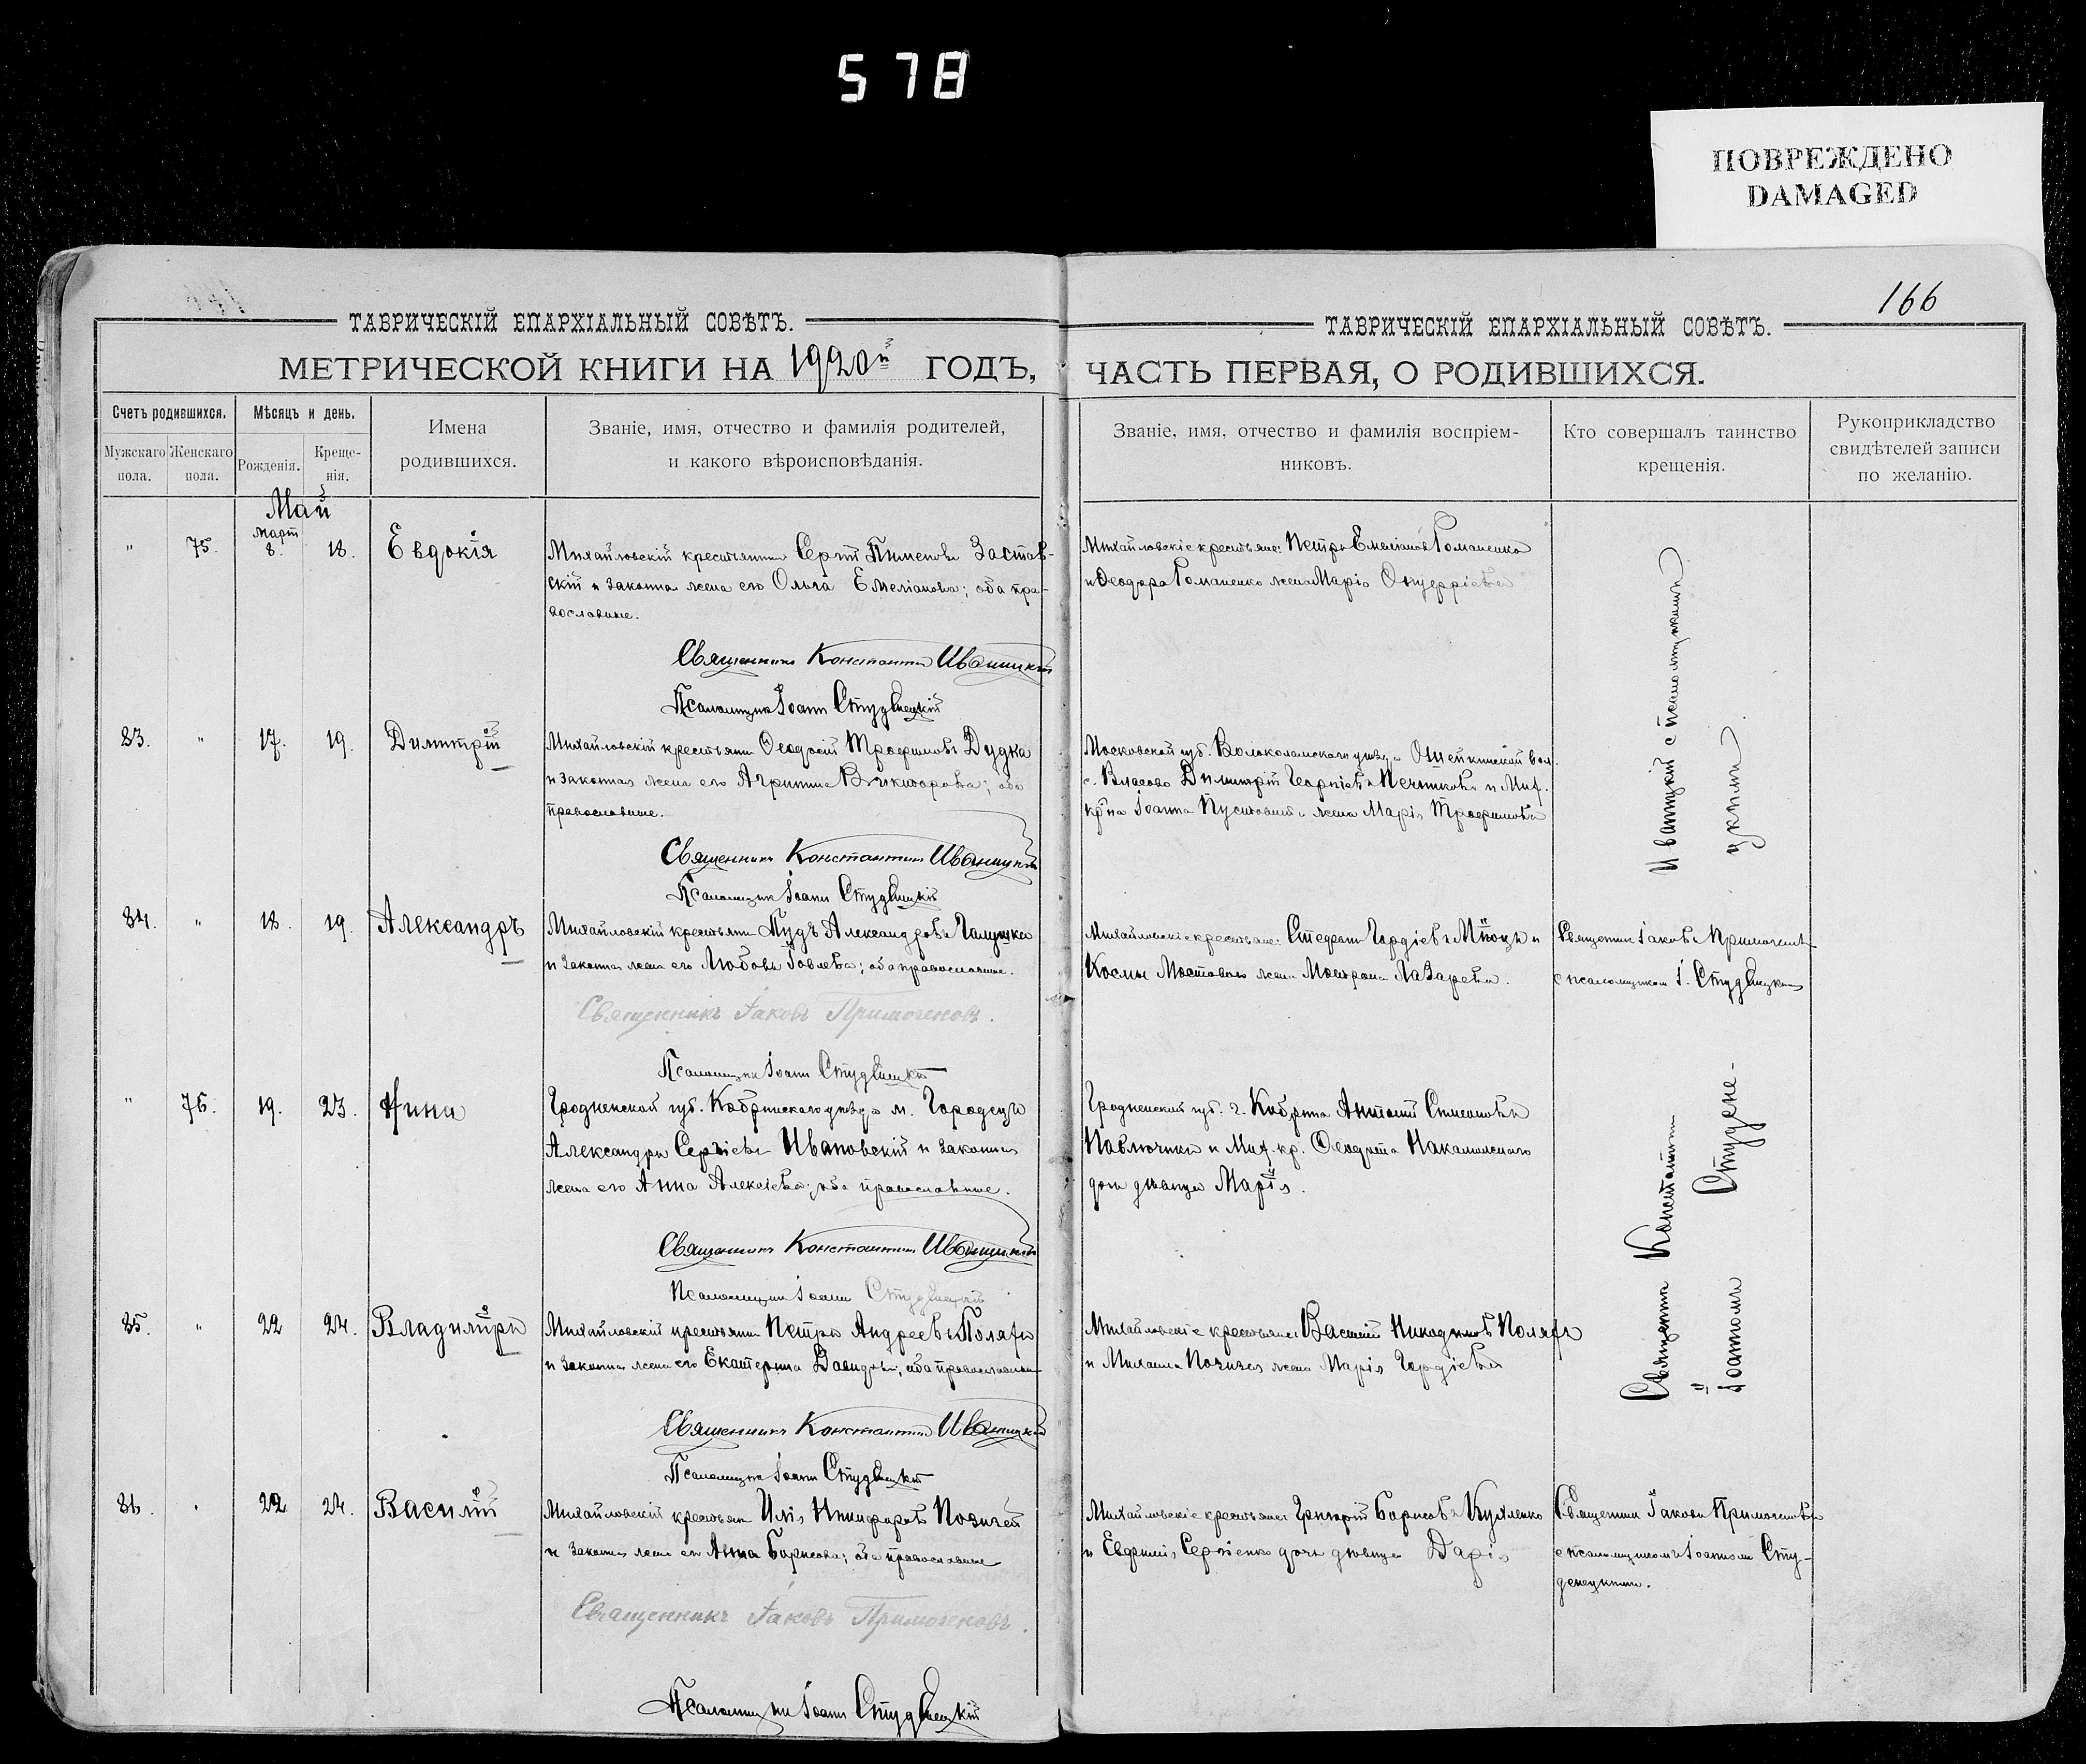 578
ПОВРЕЖДЕНО
DAMAGED
166
ТАВРИЧЕСКІЙ ЕПАРХІАЛЬНЫЙ СОВѢТЪ.
МЕТРИЧЕСКОЙ КНИГИ НА 1920й ГОДЪ,
Счетъ родившихся.
Мужскаго пола.
Женскаго пола.
Мѣсяцъ и день.
Рожденія.
Креще-
нія.
Имена
родившихся.
Званіе, имя, отчество и фамилія родителей,
и какого вѣроисповѣданія.
ТАВРИЧЕСКІЙ ЕПАРХІАЛЬНЫЙ СОВѢТЪ.
ЧАСТЬ ПЕРВАЯ, О РОДИВШИХСЯ.
Званіе, имя, отчество и фамилія воспріем-
никовъ.
Кто совершалъ таинство
крещенія.
Рукоприкладство
свидѣтелей записи
по желанію.
Май
" 75. Март 8. 18. Евдокія
Михайловскій крестьянинъ Сергій Пименовъ Застав-
скій и законная жена его Ольга Емеліанова; оба пра-
вославные.
Священникъ Константинъ Иваницкій
Псаломщикъ Іоаннъ Студенецкій
Михайловскіе крестьяне: Петръ Емеліановъ Романенко
и Ѳеодора Романенко жена Марія Онуфріева
83. " 17. 19. Димитрій
Михайловскій крестьянинъ Ѳеодосій Трофимовъ Дудка
и законная жена его Агриппина Викторова; оба
православные.
Священникъ Константинъ Иваницкій
Псаломщикъ Іоаннъ Студенецкій
Московской губ. Волоколамскаго уѣзда вол.
с. Власово Димитрій Георгіевъ Печниковъ и Мих.
кр-на Іоанна жена Марія Трофимова
84. " 18. 19. Александръ
Михайловскій крестьянинъ Александровъ Галушка
и законная жена его Любовь Іовлева; оба православные.
Священникъ Іаковъ Примогеновъ.
Псаломщикъ Іоаннъ Студенецкій
Михайловскіе крестьяне: Стефанъ Гордіевъ и
Космы Мостового жена Матрона Лазарева.
Священникъ Іаковъ Примогеновъ
с псаломщикомъ І. Студенецкимъ
" 76. 19. 23. Нина
Гродненской губ. Кобринскаго уѣзда м. Городецъ
Александръ Сергіевъ Ивановскій и законная
жена его Анна Алексіева; оба православные.
Священникъ Константинъ Иваницкій
Псаломщикъ Іоаннъ Студенецкій
Гродненской губ. г. Кобрина Антоній Симеоновъ
и Мих. кр. Ѳеодота
дочь дѣвица Марія.
85. " 22 24. Владиміръ
Михайловскій крестьянинъ Петръ Андреевъ Поляхъ
и законная жена его Екатерина Давидова; оба православные
Священникъ Константинъ Иваницкій
Псаломщикъ Іоаннъ Студенецкій
Михайловскіе крестьяне: Василій Никодимовъ Поляхъ
и Михаила жена Марія Гордіева
Священникъ Константинъ
Иваницкій с псаломщикомъ
Іоанномъ Студене-
цкимъ
86. " 22 24. Василій
Михайловскій крестьян. Илія Никифоровъ Позигей
и законная жена его Анна Борисова; оба православные
Священникъ Іаковъ Примогеновъ.
Псаломщикъ Іоаннъ Студенецкій
Михайловскіе крестьяне: Григорій Борисовъ
и Евфимія Сергіенко дочь дѣвица Дарія
Священникъ Іаковъ Примогеновъ
с псаломщикомъ Іоанномъ Сту-
денецкимъ.